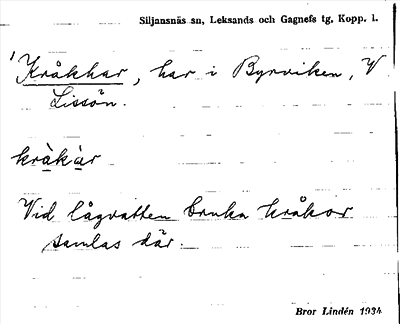 Siljansnäs sn, Leksands och Gagnefs tg, Kopp. l.
Kråkhar, har i Byrviken, V
Lissön.
kràkàr
Vid lågvatten bruka kråkor
samlas där.
Bror Lindén 1934